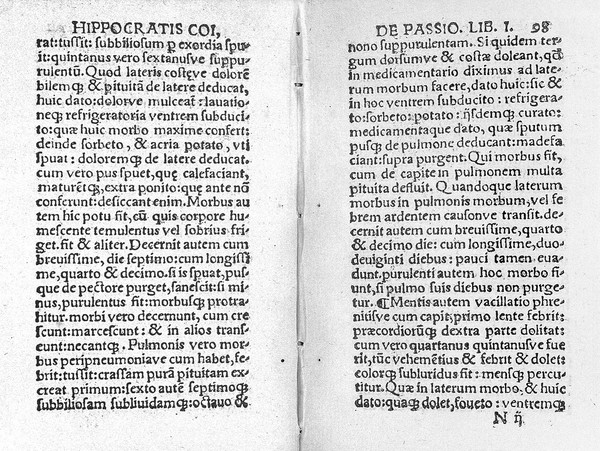 HIPPOCRATIS COI,
rat: tussit: subbiliosum ꝑ exordia spu-
it: quintanus vero sextanusve suppu-
rulentũ. Quod lateris costęve dolorẽ
bilemq̃; & pituitã de latere deducat,
huic dato: dolorve mulceat: lauatio-
neq̃; refrigeratoria ventrem subduci-
to: quæ huic morbo maxime confert:
deinde sorbeto, & acria potato, vti
spuat: doloremq̃; de latere deducat.
cum vero pus spuet, quę calefaciant,
maturẽtq̃;, extra ponito: quę ante nõ
conferunt: desiccant enim. Morbus au
tem hic potu fit, cũ quis corpore hu-
mescente temulentus vel sobrius fri-
get. fit & aliter. Decernit autem cum
breuissime, die septimo: cum longissi
me, quarto & decimo. si is spuat, pus-
que de pectore purget, sanescit: si mi-
nus, purulentus fit: morbusq̃; protra-
hitur. morbi vero decernunt, cum cre
scunt: marcescunt: & in alios trans-
eunt: necantq̃;. Pulmonis vero mor-
bus peripneumoniave cum habet, fe-
brit: tussit: crassam purã pituitam ex-
creat primum: sexto autẽ septimoq̃;
subbiliosam subliuidamq̃;: octauo &
DE PASSIO. LIB. I. 98
nono suppurulentam. Si quidem ter-
gum dorsumve & costæ doleant, qđ
in medicamentario diximus ad late-
rum morbum facere, dato huic: sic &
in hoc ventrem subducito: refrigera-
to: sorbeto: potato: ijsdemq̃; curato:
medicamentaque dato, quæ sputum
pusq̃; de pulmone deducant: madefa-
ciant: supra purgent. Qui morbus fit,
cum de capite in pulmonem multa
pituita defluit. Quandoque laterum
morbus in pulmonis morbum, vel fe
brem ardentem causonve transit. de-
cernit autem cum breuissime, quarto
& decimo die: cum longissime, duo-
deuiginti diebus: pauci tamen eua-
dunt. purulenti autem hoc morbo fi-
unt, si pulmo suis diebus non purge-
tur. ¶ Mentis autem vacillatio phre-
nitisve cum capit, primo lente febrit:
præcordiorũq̃; dextra parte dolitat:
cum vero quartanus quintanusve fue
rit, tũc vehemẽtius & febrit & dolet:
colorq̃; subluridus fit: mensq̃; percu-
titur. Quæ in laterum morbo, & huic
dato: quaq̃; dolet, foueto: ventremq̃;
N ij